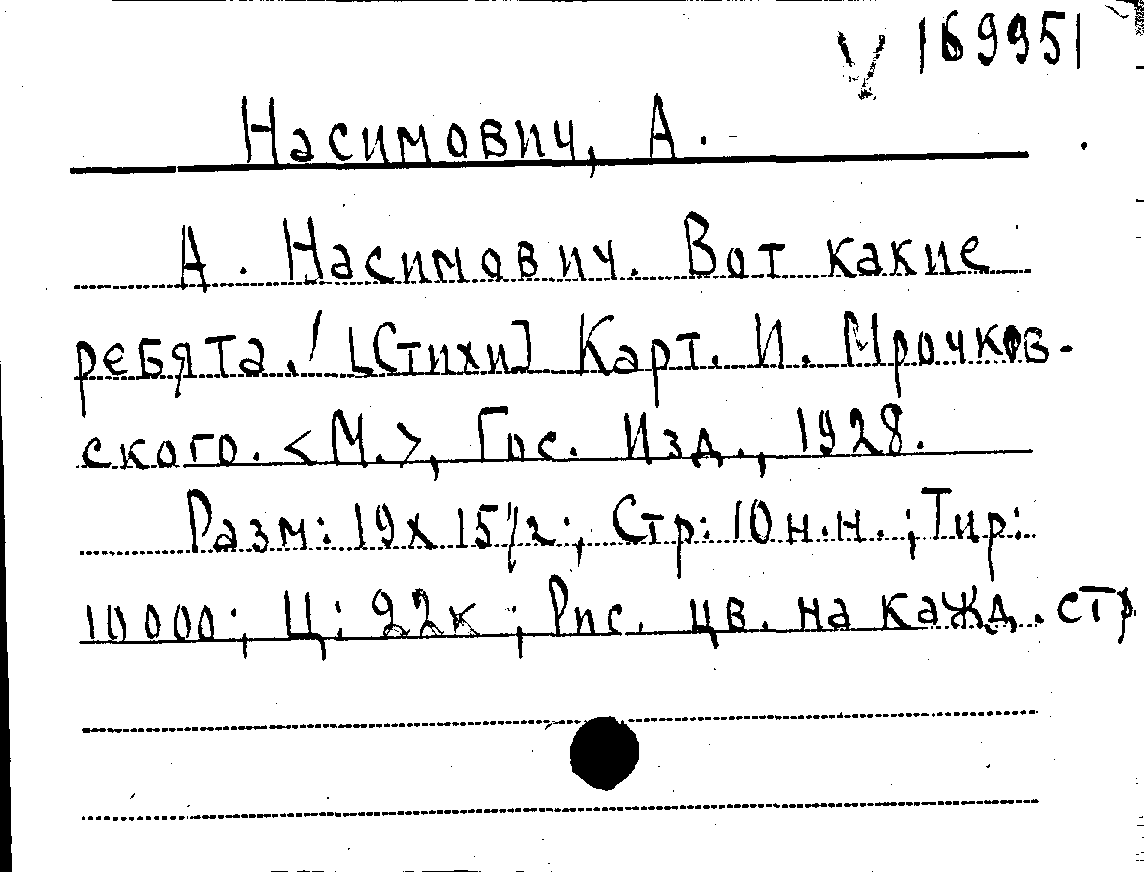 V 169951
Насимович, А.
А. Насимович. Вот какие
ребята! [Стихи] Карт. И. Мрочков-
ского. <М.>, Гос. Изд., 1928.
Разм: 19х15 1/2; Стр: 10 н.н.; Тир:
10000; Ц: 22к; Рис. цв. на кажд. стр